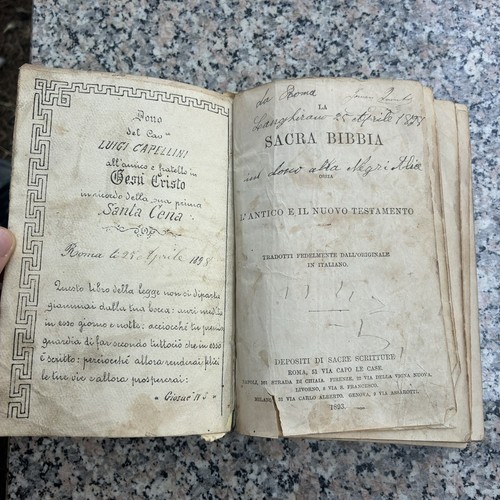 Dono
del Cav.
LUIGI CAPELLINI
all'amico e fratello in
Gesù Cristo
in ricordo della sua prima
Santa Cena
Roma li 25 Aprile 1898
Questo libro della legge non si diparta
giammai dalla tua bocca: anzi medita
in esso giorno e notte: acciocchè tu prenda
guardia di far secondo tutto ciò che in esso
è scritto: perciocchè allora renderai felici
le tue vie e allora prospererai:
" Giosuè
da Roma
LA
Langhirano 25 Aprile
SACRA BIBBIA
OSSIA
L'ANTICO E IL NUOVO TESTAMENTO
TRADOTTI FEDELMENTE DALL'ORIGINALE
IN ITALIANO.
DEPOSITI DI SACRE SCRITTURE
ROMA, 52 VIA CAPO LE CASE.
STRADA DI CHIAIA. FIRENZE, VIA DELLA VIGNA NUOVA.
LIVORNO, VIA S. FRANCESCO.
VIA CARLO ALBERTO. GENOVA, VIA ASSAROTTI.
1893.